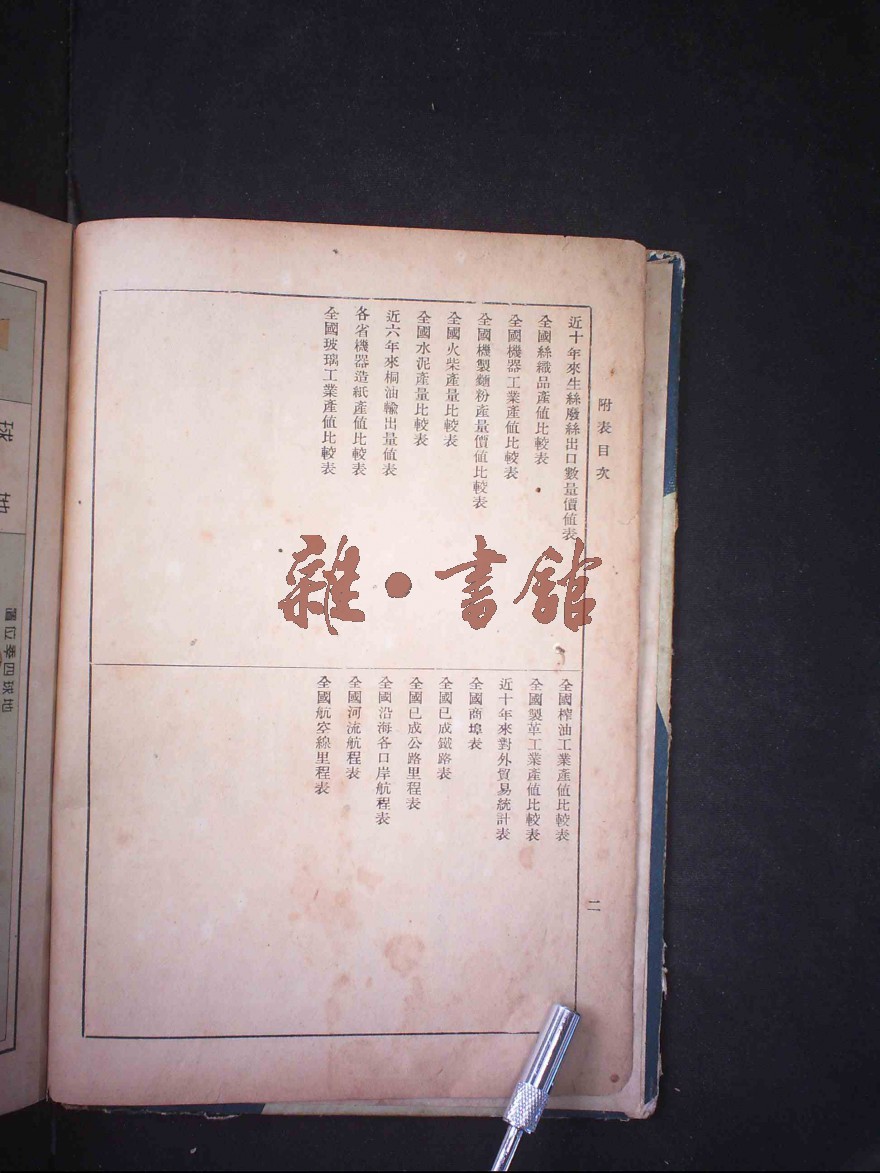 附表目次
近十年來生絲廢絲出口數量價值表
全國絲織品產值比較表
全國機器工業產值比較表
全國機製麵粉產量價值比較表
全國火柴產量比較表
全國水泥產量比較表
近六年來桐油輸出量值表
各省機器造紙產值比較表
全國玻璃工業產值比較表
全國榨油工業產值比較表
全國製革工業產值比較表
近十年來對外貿易統計表
全國商埠表
全國已成鐵路表
全國已成公路里程表
全國沿海各口岸航程表
全國河流航程表
全國航空線里程表
二
雜·書館
地球
地球四季位置